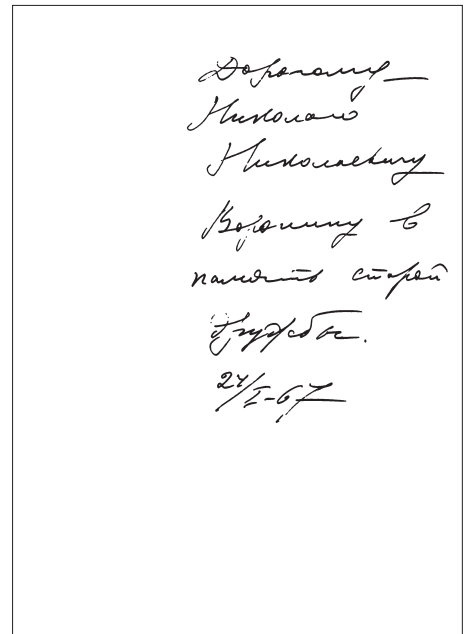 Дорогому
Николаю
Николаевичу
Воронину в
память старой
дружбы.
24/I-67